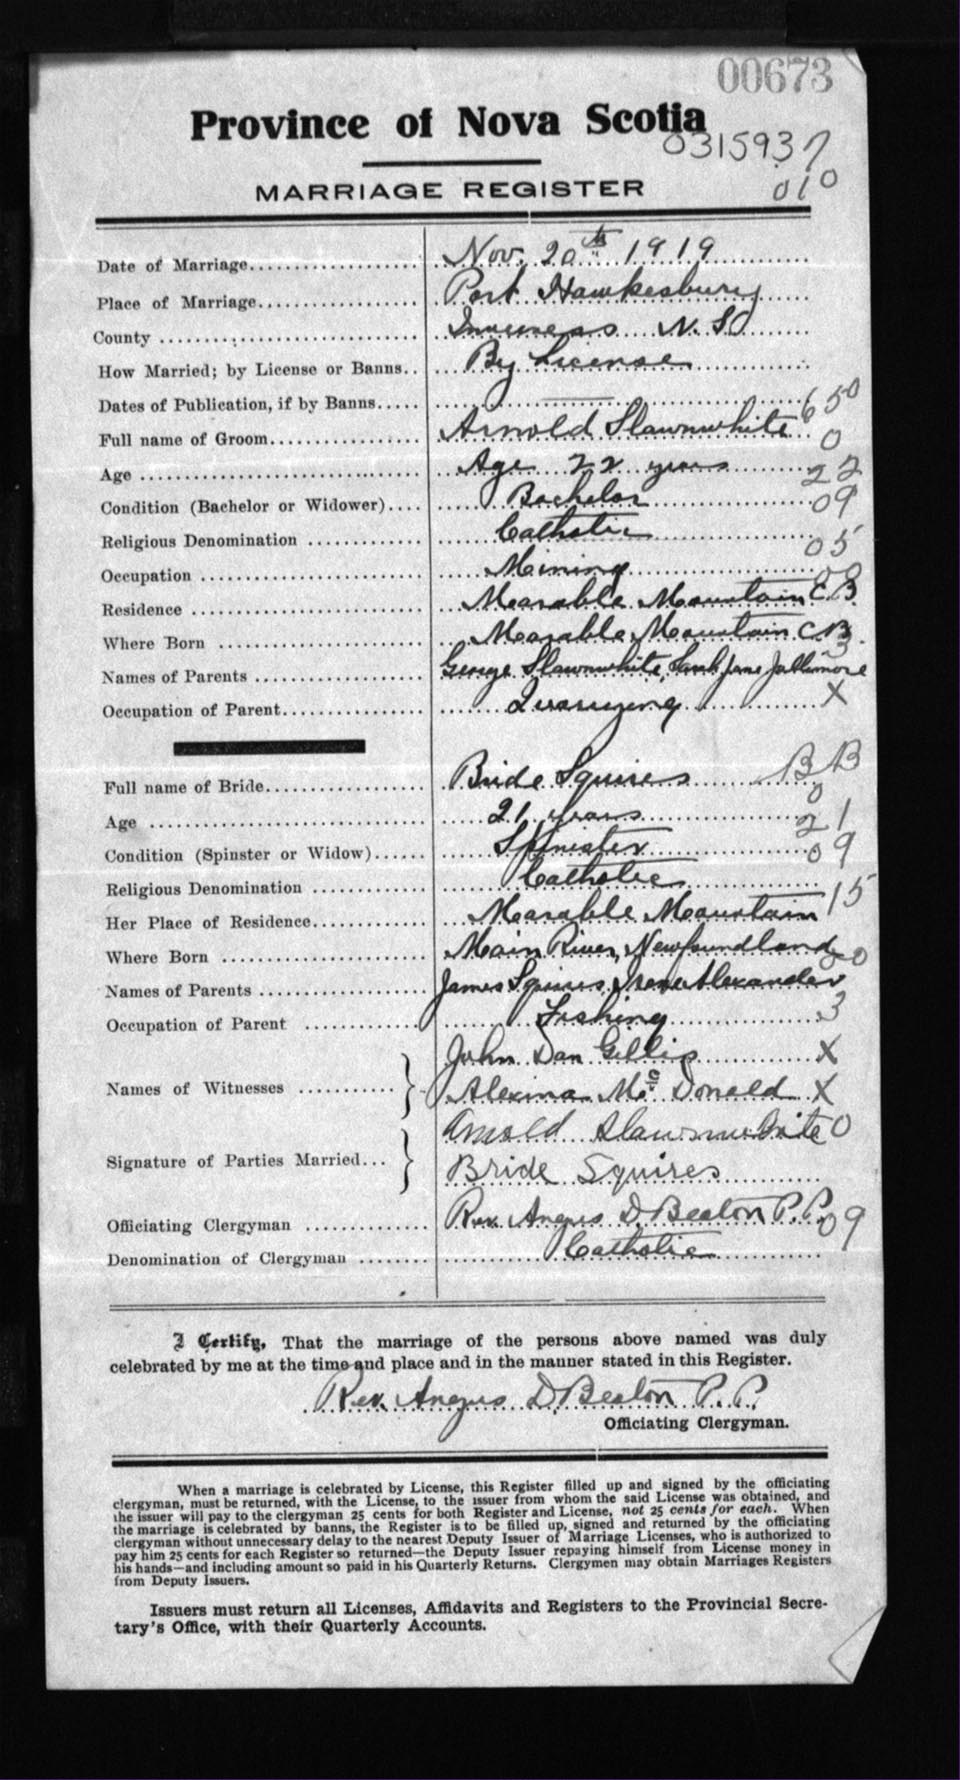 00673
Province of Nova Scotia
0315937
010
MARRIAGE REGISTER
Date of Marriage Nov. 20th 1919
Place of Marriage Port Hawkesbury
County Inverness N. S
How Married; by License or Banns By License
Dates of Publication, if by Banns
Full name of Groom Arnold Slawnwhite 650
0
Age Age 22 years 22
Condition (Bachelor or Widower) Bachelor 09
Religious Denomination Catholic
Occupation Mining 05
Residence Marable Mountain C.B.
Where Born Marable Mountain C B.
3
Names of Parents George Slawnwhite, Sarah Jane Jollimore
Occupation of Parent Quarrying X
Full name of Bride Bride Squires BB
0
Age 21 years 21
Condition (Spinster or Widow) Spinster 09
Religious Denomination Catholic
Her Place of Residence Marable Mountain 15
Where Born Main River, Newfoundland
20
Names of Parents James Squires, Irene Alexander
Occupation of Parent Fishing 3
Names of Witnesses } John Dan Gillis X
Alexina Mc Donald X
Signature of Parties Married } Arnold Slawnwhite 0
Bride Squires
Officiating Clergyman Rev. Angus D. Beaton P. P. 09
Denomination of Clergyman Catholic
I Certify, That the marriage of the persons above named was duly
celebrated by me at the time and place and in the manner stated in this Register.
Rev. Angus D. Beaton P. P.
Officiating Clergyman.
When a marriage is celebrated by License, this Register filled up and signed by the officiating
clergyman, must be returned, with the License, to the issuer from whom the said License was obtained, and
the issuer will pay to the clergyman 25 cents for both Register and License, not 25 cents for each. When
the marriage is celebrated by banns, the Register is to be filled up, signed and returned by the officiating
clergyman without unnecessary delay to the nearest Deputy Issuer of Marriage Licenses, who is authorized to
pay him 25 cents for each Register so returned—the Deputy Issuer repaying himself from License money in
his hands—and including amount so paid in his Quarterly Returns. Clergymen may obtain Marriages Registers
from Deputy Issuers.
Issuers must return all Licenses, Affidavits and Registers to the Provincial Secre-
tary's Office, with their Quarterly Accounts.